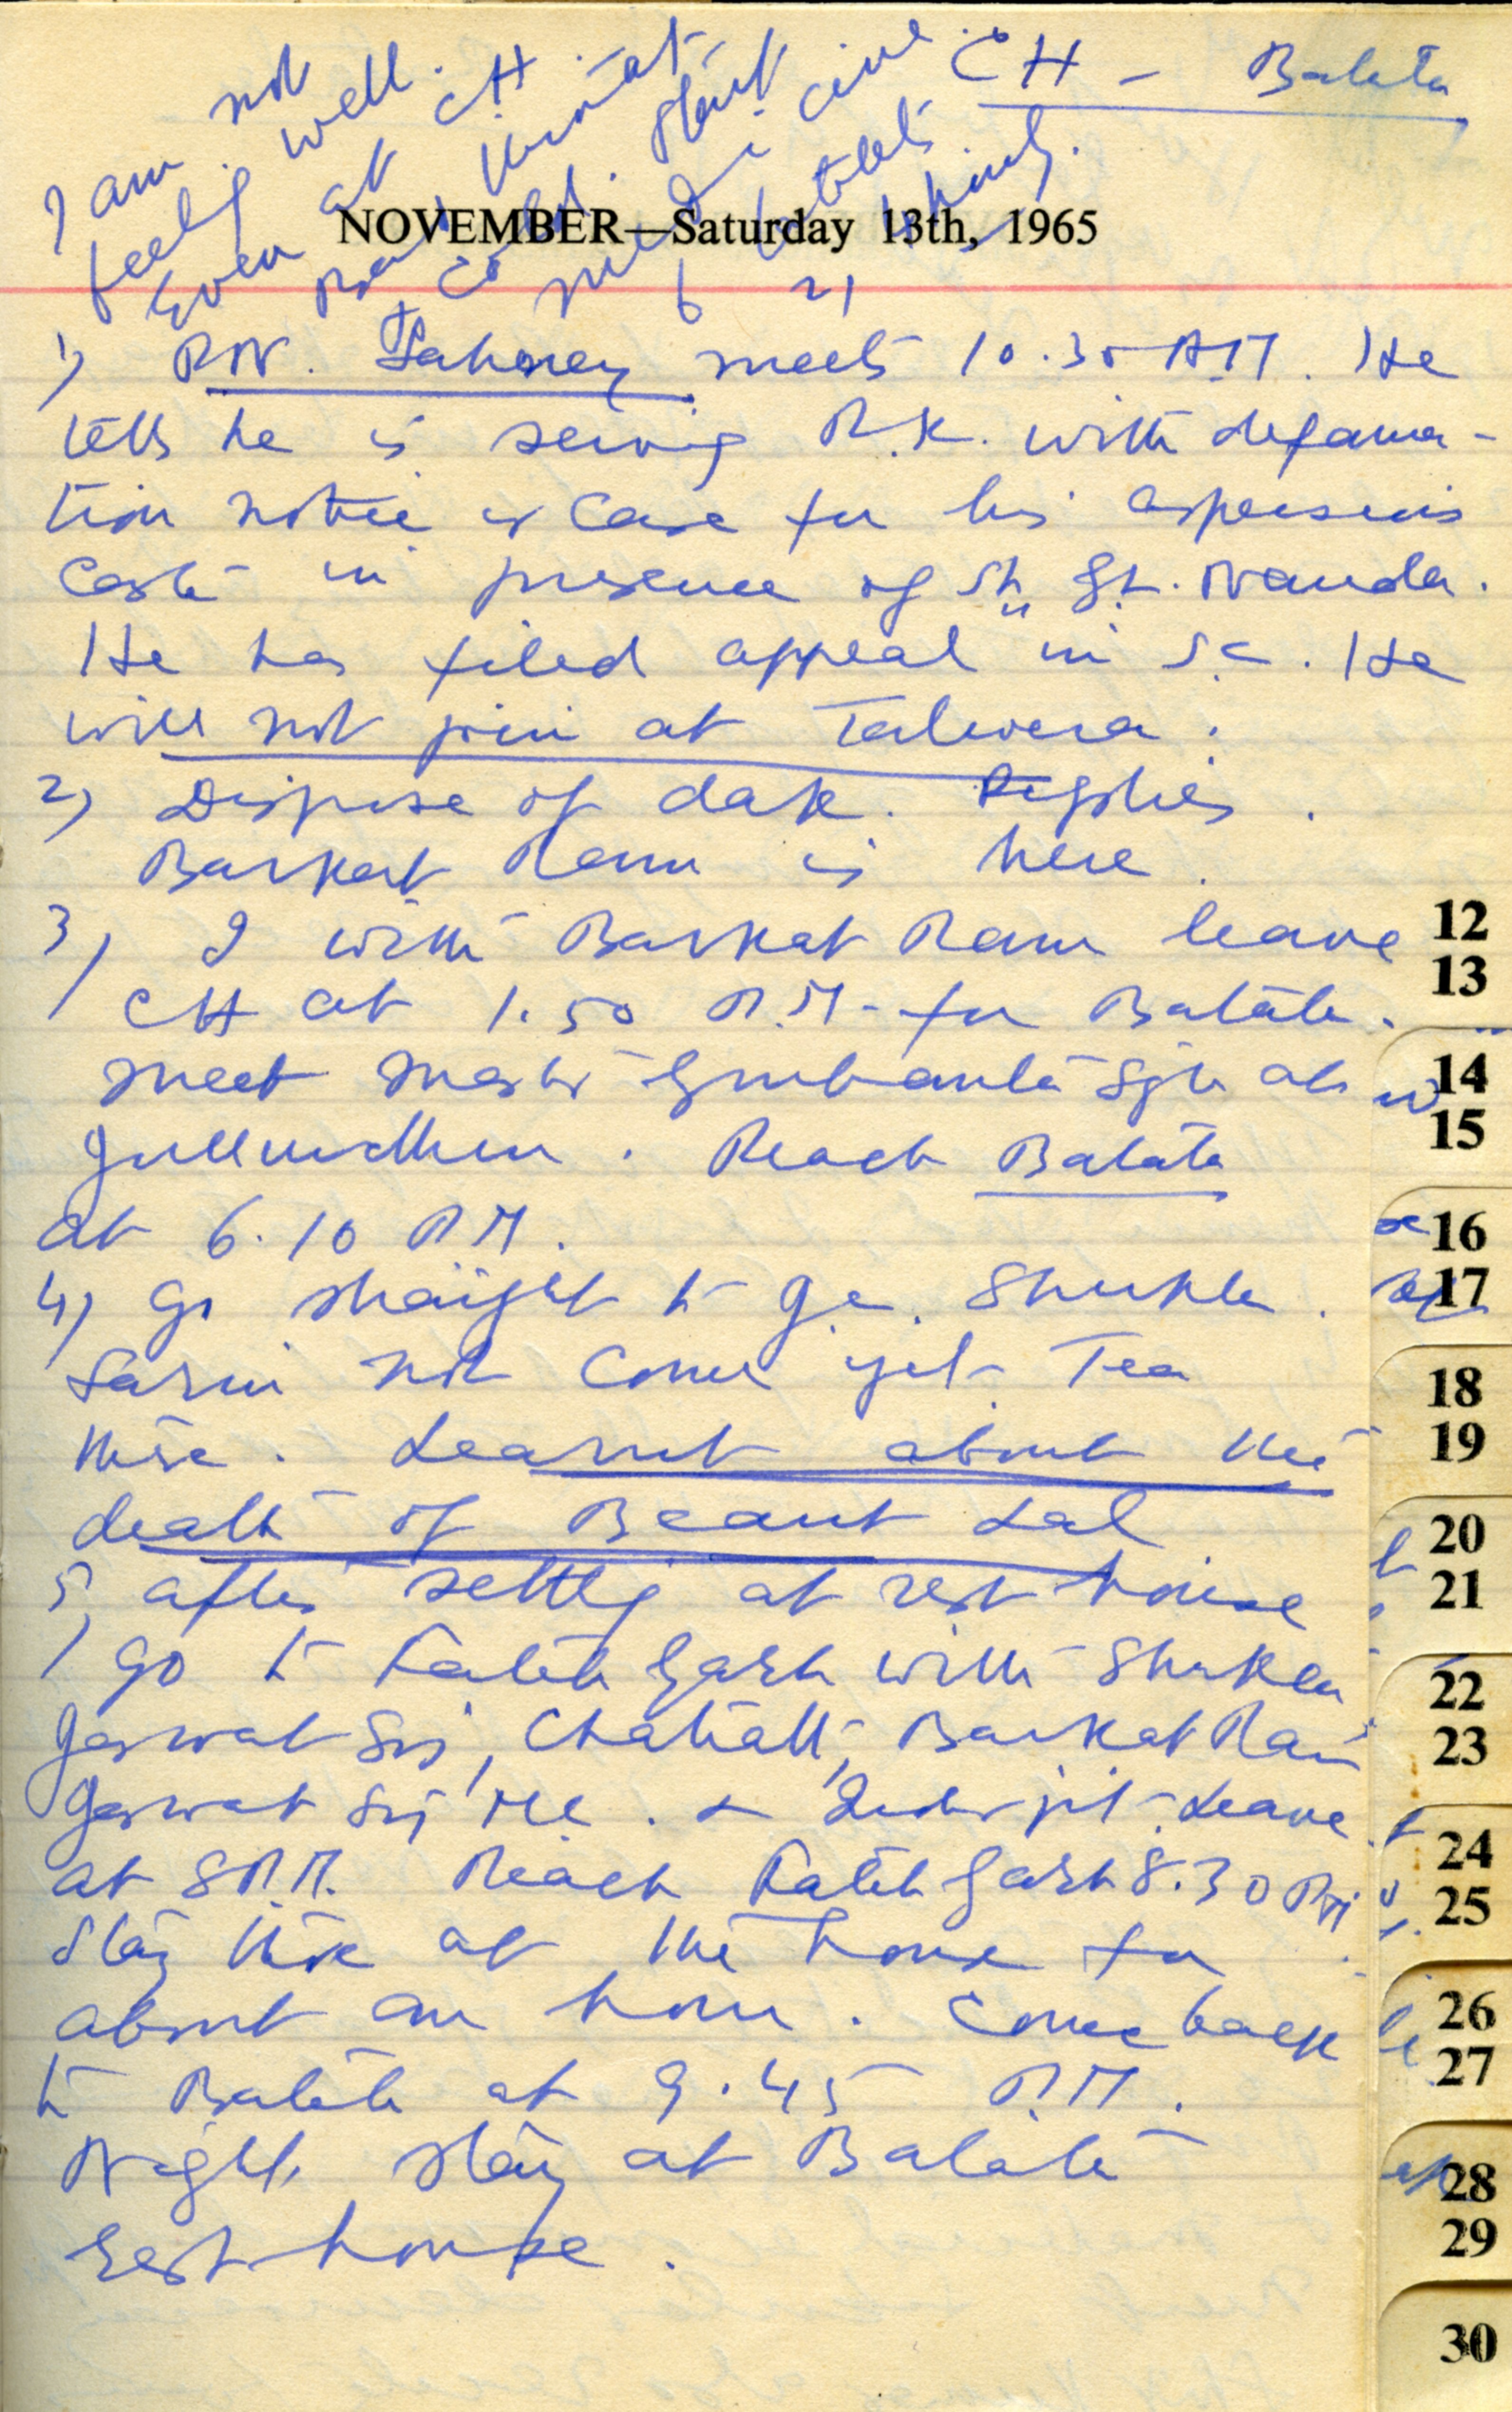 CH - Batala
I am not
feeling well.
Even at CH.
Bad throat
& cold. Start
medicine
6 tablets
24 hourly.
NOVEMBER—Saturday 13th, 1965
1) R.N. Sahney meets 10.30 A.M. He
tells he is serving R.K. with defama-
tion notice & case for his aspersions
cast in presence of Sh. G.L. Nanda.
He has filed appeal in S.C. He
will not join at Talwara.
2) Dispose of dak. Replies.
Barkat Ram is here.
3) I with Barkat Ram leave
CH at 1.50 P.M. for Batala.
meet Master Gurbanta Sgh at
Jullundhur. Reach Batala
at 6.10 P.M.
4) Go straight to g.c. Shukla.
Sarin not come yet. Tea
there. Learnt about the
death of Beant Lal
5) after settlg at rest house
go to Fateh Garh with Shukla
Jaswat Sgj, Chahall, Barkat Ram
Jaswat Sgj Me. & Inderjit. Leave
at 8 P.M. Reach Fateh Garh 8.30 PM
Stay there at the house for
about an hour. Come back
to Batala at 9.45 P.M.
Night stay at Batala
rest house.
12
13
14
15
16
17
18
19
20
21
22
23
24
25
26
27
28
29
30